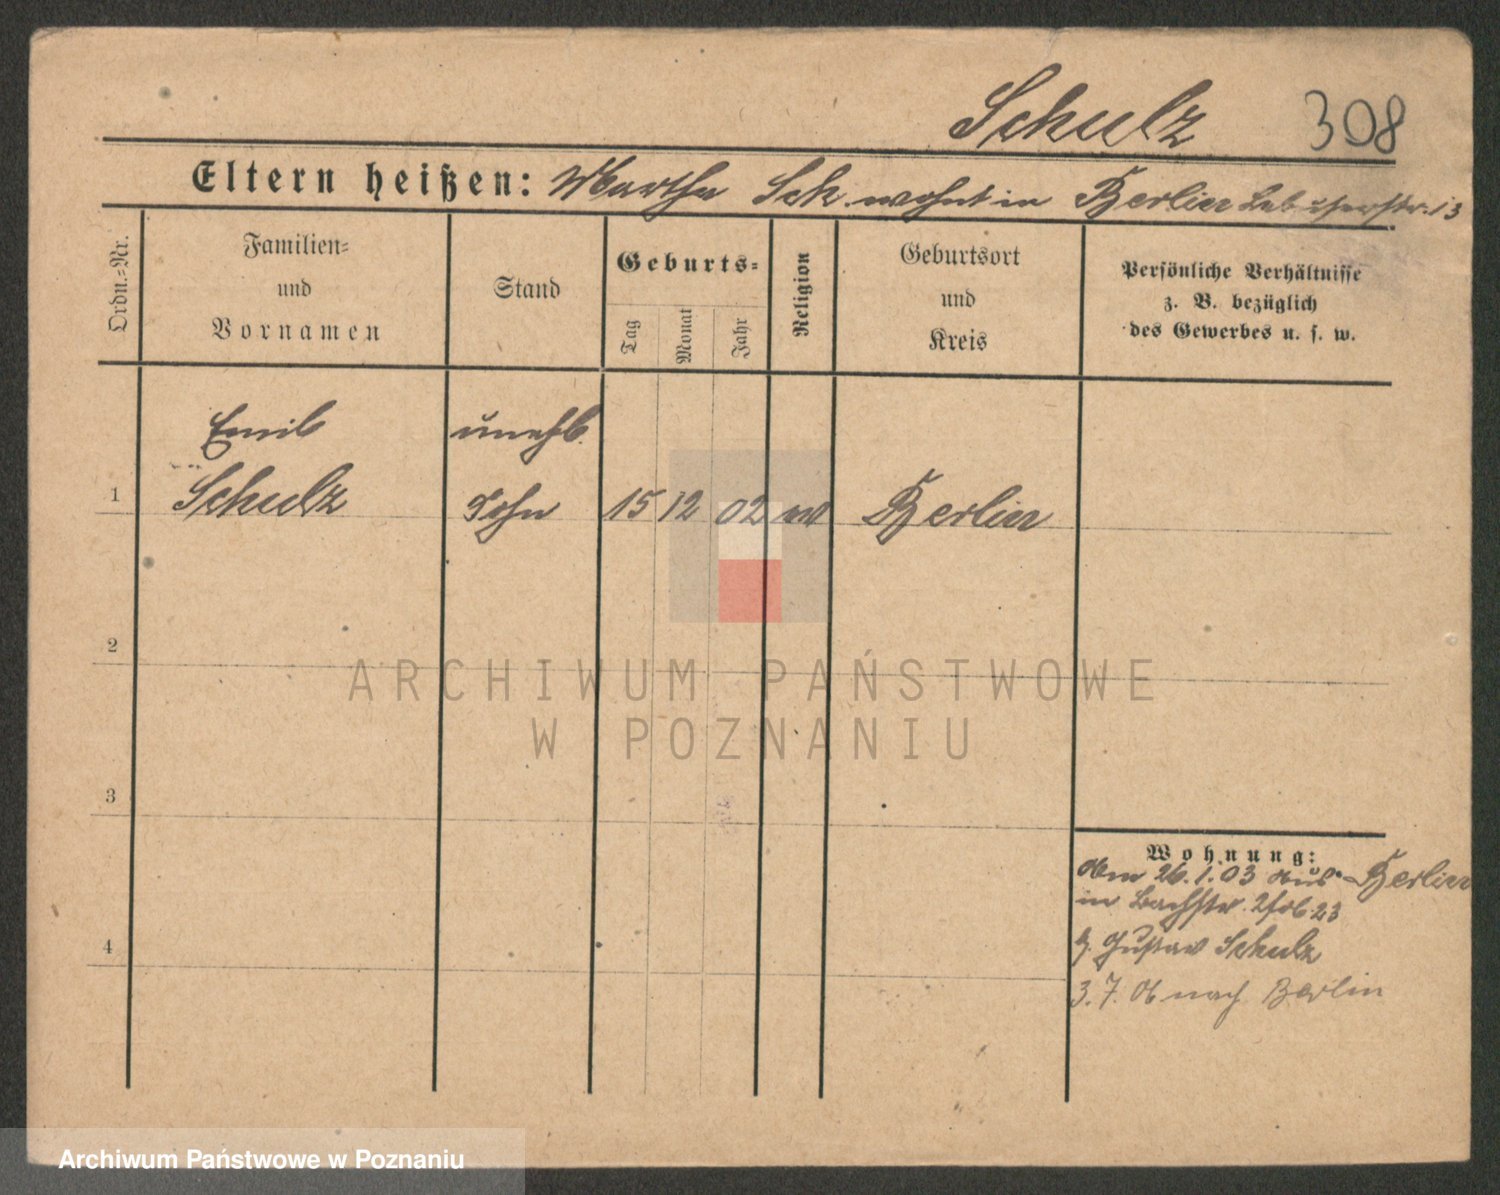 Schulz 308
Eltern heißen: Martha Sch. wohnt in Berlin Lebuserstr. 13
Ordn.=Nr.
Familien=
und
Vornamen
Stand
Geburts=
Tag
Monat
Jahr
Religion
Geburtsort
und
Kreis
Persönliche Verhältnisse
z. B. bezüglich
des Gewerbes u. s. w.
Emil
unehl.
1 Schulz Sohn 15 12 02 Berlin
2
ARCHIWUM PAŃSTWOWE
W POZNANIU
3
Wohnung:
26.1.03 aus Berlin
in Bachstr. 23
b. Gustav Schulz
3.7. 06 nach Berlin
4
Archiwum Państwowe w Poznaniu